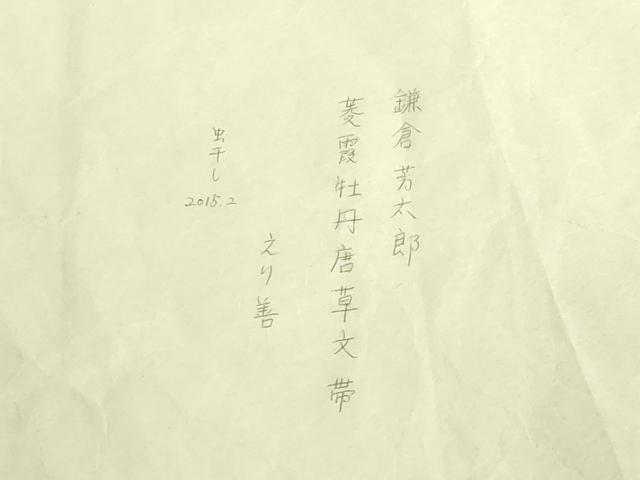 鎌倉芳太郎
菱霞牡丹唐草文帯
えり善
虫干し
2015.2